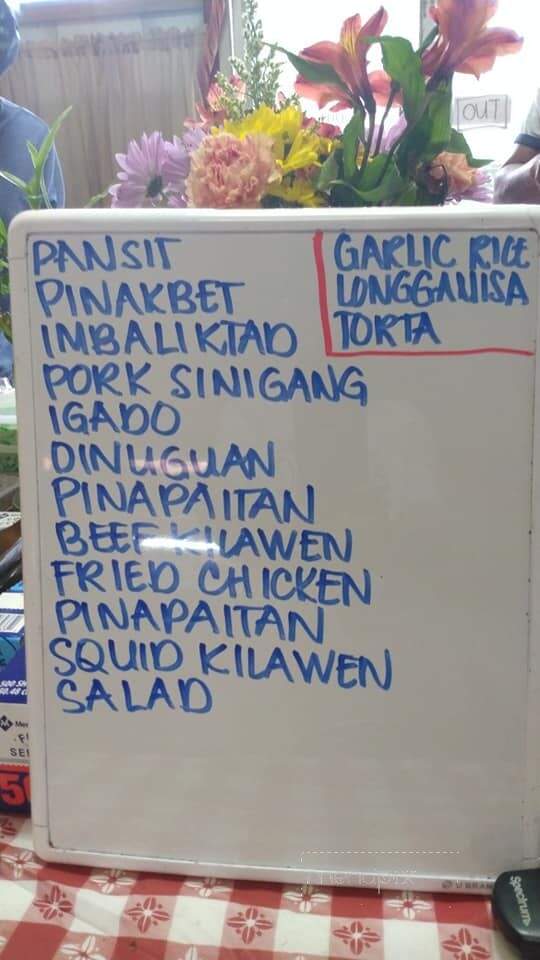 PANSIT
PINAKBET
IMBALIKTAD
PORK SINIGANG
IGADO
DINUGUAN
PINAPAITAN
BEEF KILAWEN
FRIED CHICKEN
PINAPAITAN
SQUID KILAWEN
SALAD
GARLIC RICE
LONGGANISA
TORTA
OUT
Spectrum